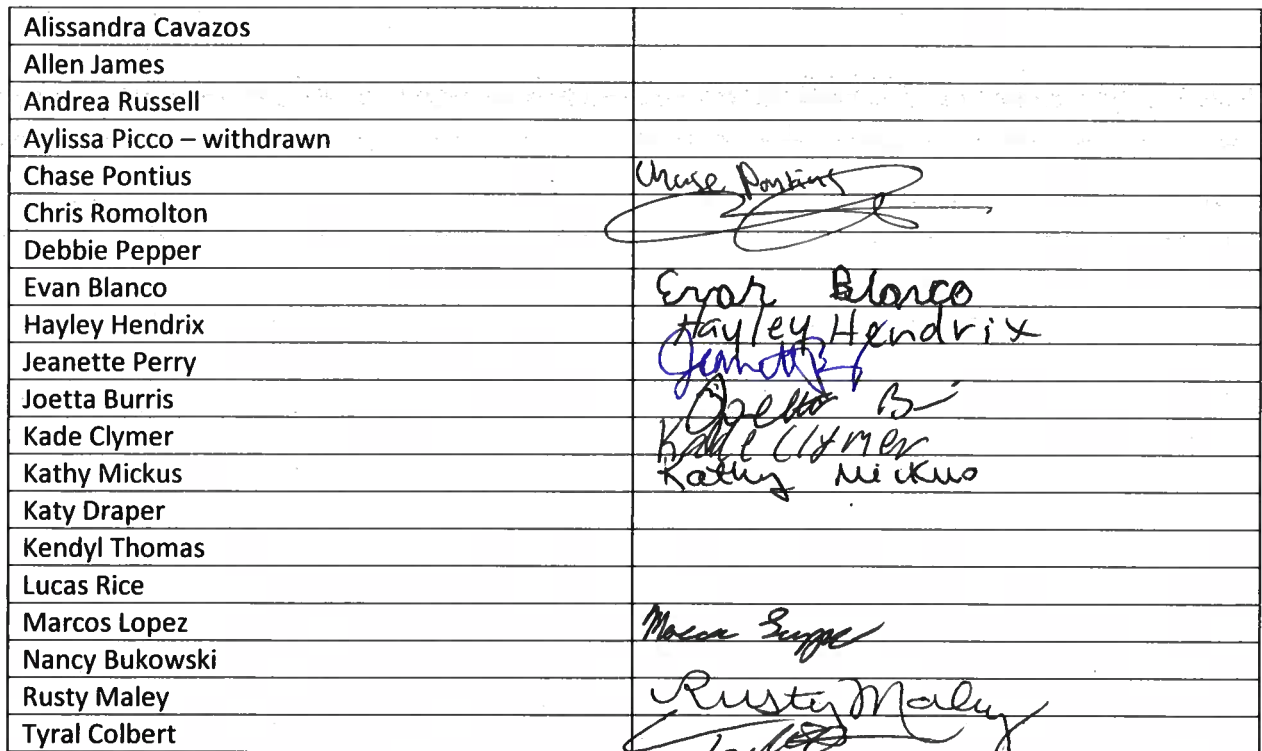 Alissandra Cavazos
Allen James
Andrea Russell
Aylissa Picco – withdrawn
Chase Pontius Chase Pontius
Chris Romolton
Debbie Pepper
Evan Blanco Evan Blanco
Hayley Hendrix Hayley Hendrix
Jeanette Perry
Joetta Burris
Kade Clymer Kade Clymer
Kathy Mickus Kathy Mickus
Katy Draper
Kendyl Thomas
Lucas Rice
Marcos Lopez
Nancy Bukowski
Rusty Maley Rusty Maley
Tyral Colbert